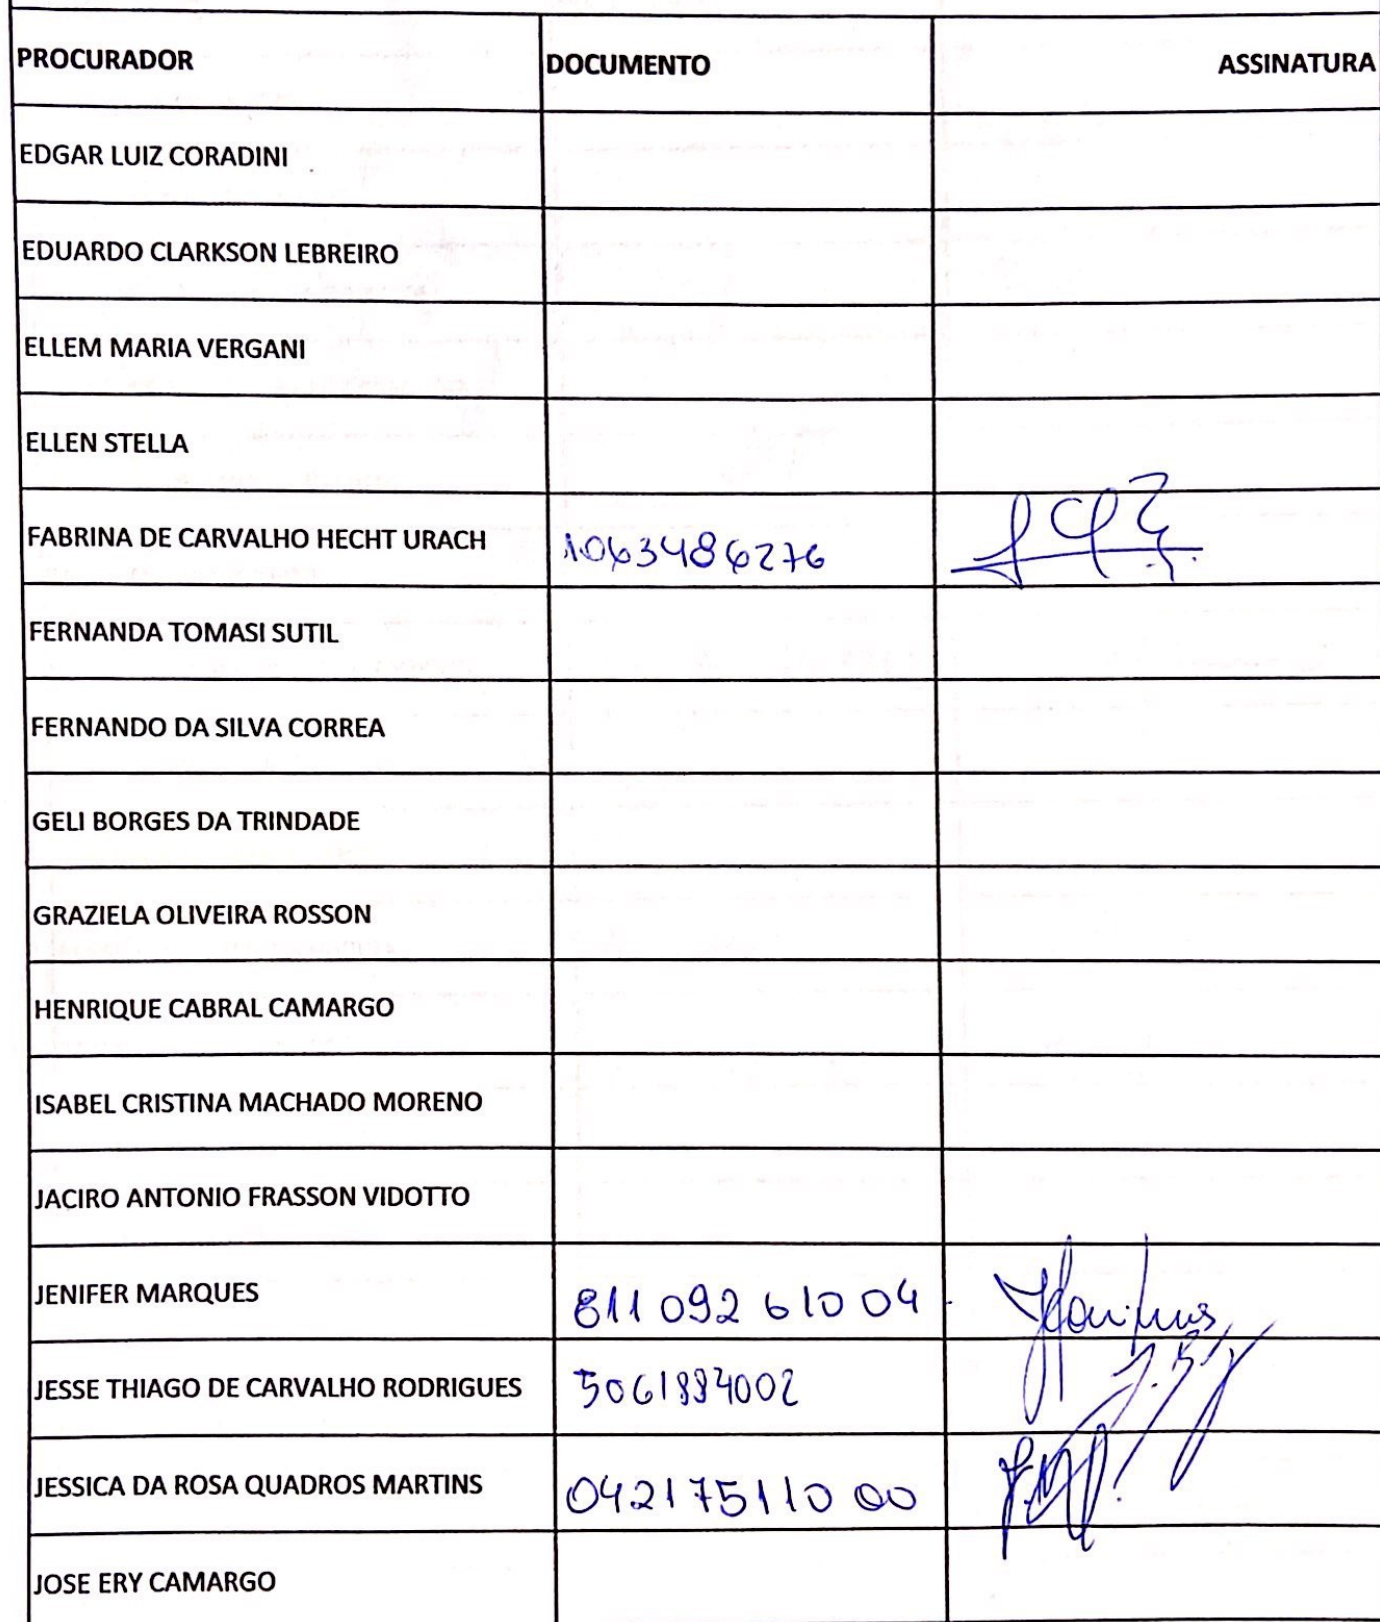 PROCURADOR DOCUMENTO ASSINATURA
EDGAR LUIZ CORADINI
EDUARDO CLARKSON LEBREIRO
ELLEM MARIA VERGANI
ELLEN STELLA
FABRINA DE CARVALHO HECHT URACH 1063486276
FERNANDA TOMASI SUTIL
FERNANDO DA SILVA CORREA
GELI BORGES DA TRINDADE
GRAZIELA OLIVEIRA ROSSON
HENRIQUE CABRAL CAMARGO
ISABEL CRISTINA MACHADO MORENO
JACIRO ANTONIO FRASSON VIDOTTO
JENIFER MARQUES 811 092 610 04
JESSE THIAGO DE CARVALHO RODRIGUES 5061884002
JESSICA DA ROSA QUADROS MARTINS 042175110 00
JOSE ERY CAMARGO